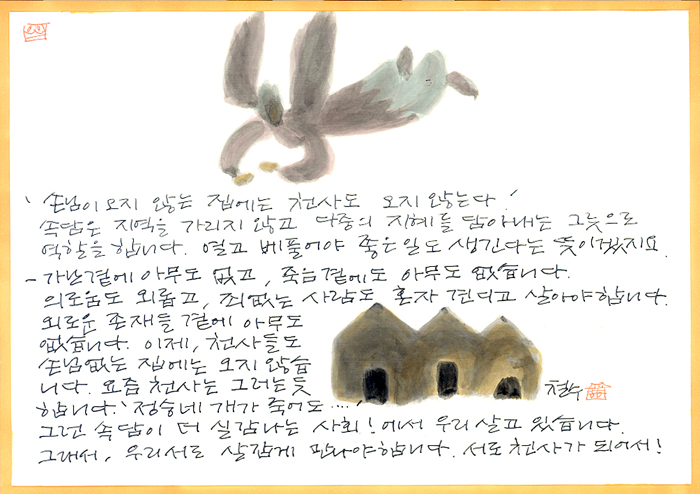 '손님이 오지 않는 집에는 천사도 오지 않는다.'
속담은 지역을 가리지 않고 다중의 지혜를 담아내는 그릇으로
역할을 합니다. 열고 베풀어야 좋은일도 생긴다는 뜻이겠지요.
- 가난곁에 아무도 없고, 죽음곁에도 아무도 없습니다.
의로움도 외롭고, 죄없는 사람도 혼자 견디고 살아야합니다.
외로운 존재들 곁에 아무도
없습니다. 이제, 천사들도
손님없는 집에는 오지 않습
니다. 요즘 천사는 그러는듯
합니다. '정승네 개가 죽어도.....'
그런 속담이 더 실감나는 사회!에서 우리 살고 있습니다.
그래서, 우리서로 살갑게 만나야합니다. 서로 천사가 되어서!
철수